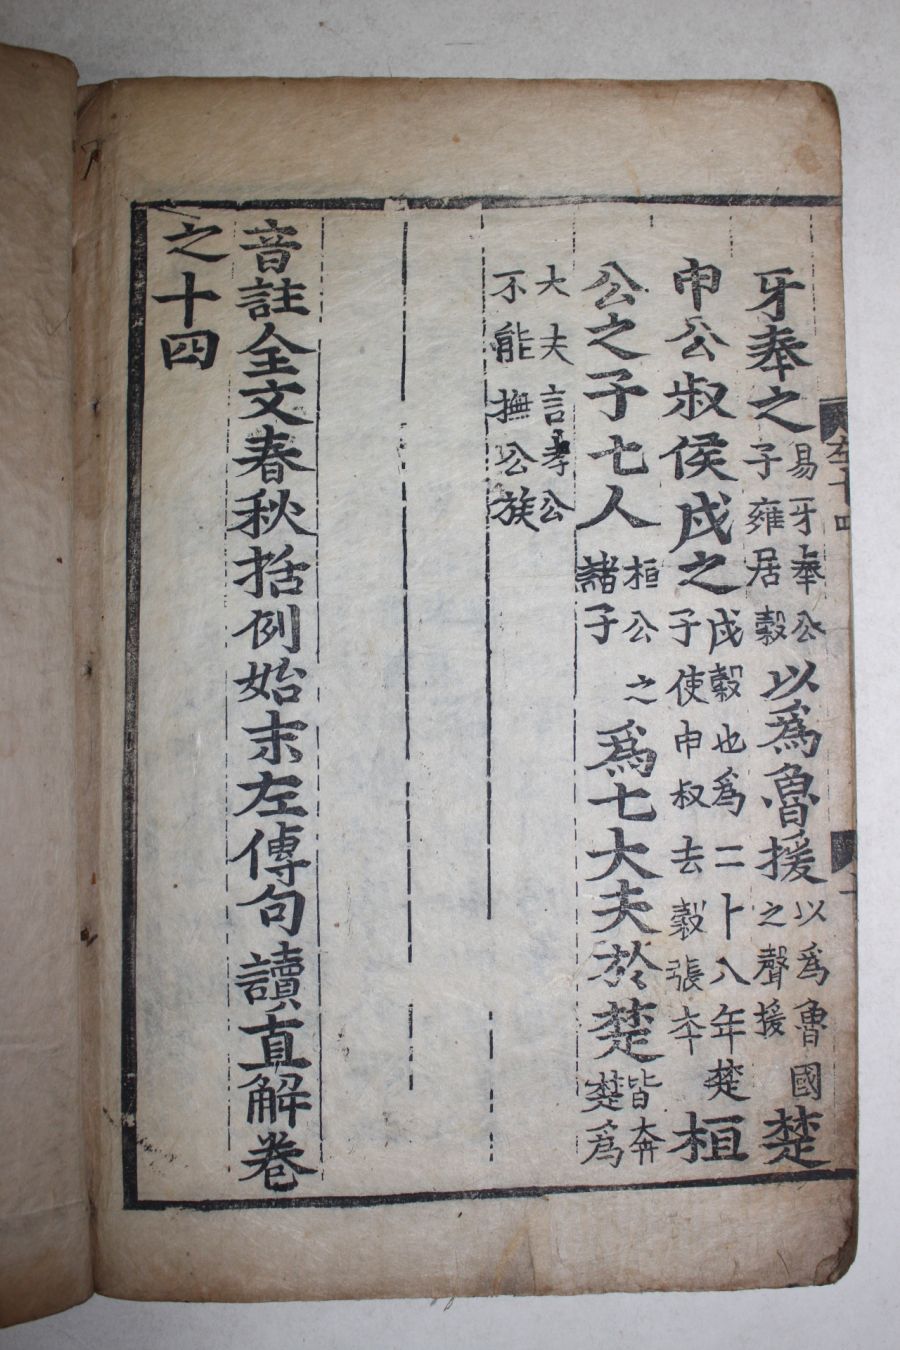 左十四
牙奉之易牙奉公子雍居穀以爲魯援以爲魯國之聲援楚
申公叔侯戍之戍穀也爲二十八年楚子使申叔去穀張本桓
公之子七人桓公之諸子爲七大夫於楚皆奔楚爲
大夫言孝公不能撫公族
音註全文春秋括例始末左傳句讀直解卷
之十四